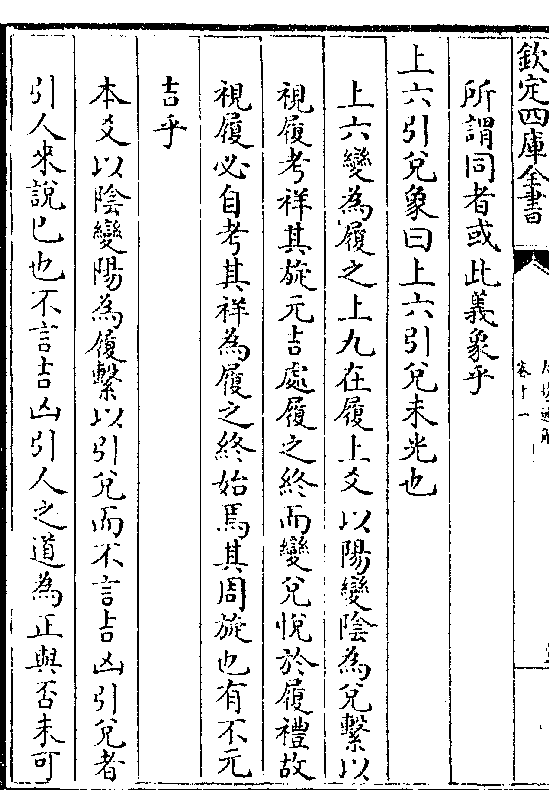 欽定四庫全書
卷十一
所謂同者或此義象乎
上六引兌象曰上六引兌未光也
上六變為履之上九在履上爻以陽變陰為兌繫以
視履考祥其旋元吉處履之終而變兌悅於履禮故
視履必自考其祥為履之終始焉其周旋也有不元
吉乎
本爻以陰變陽為履繫以引兌而不言吉凶引兌者
引人來說已也不言吉凶引人之道為正與否未可